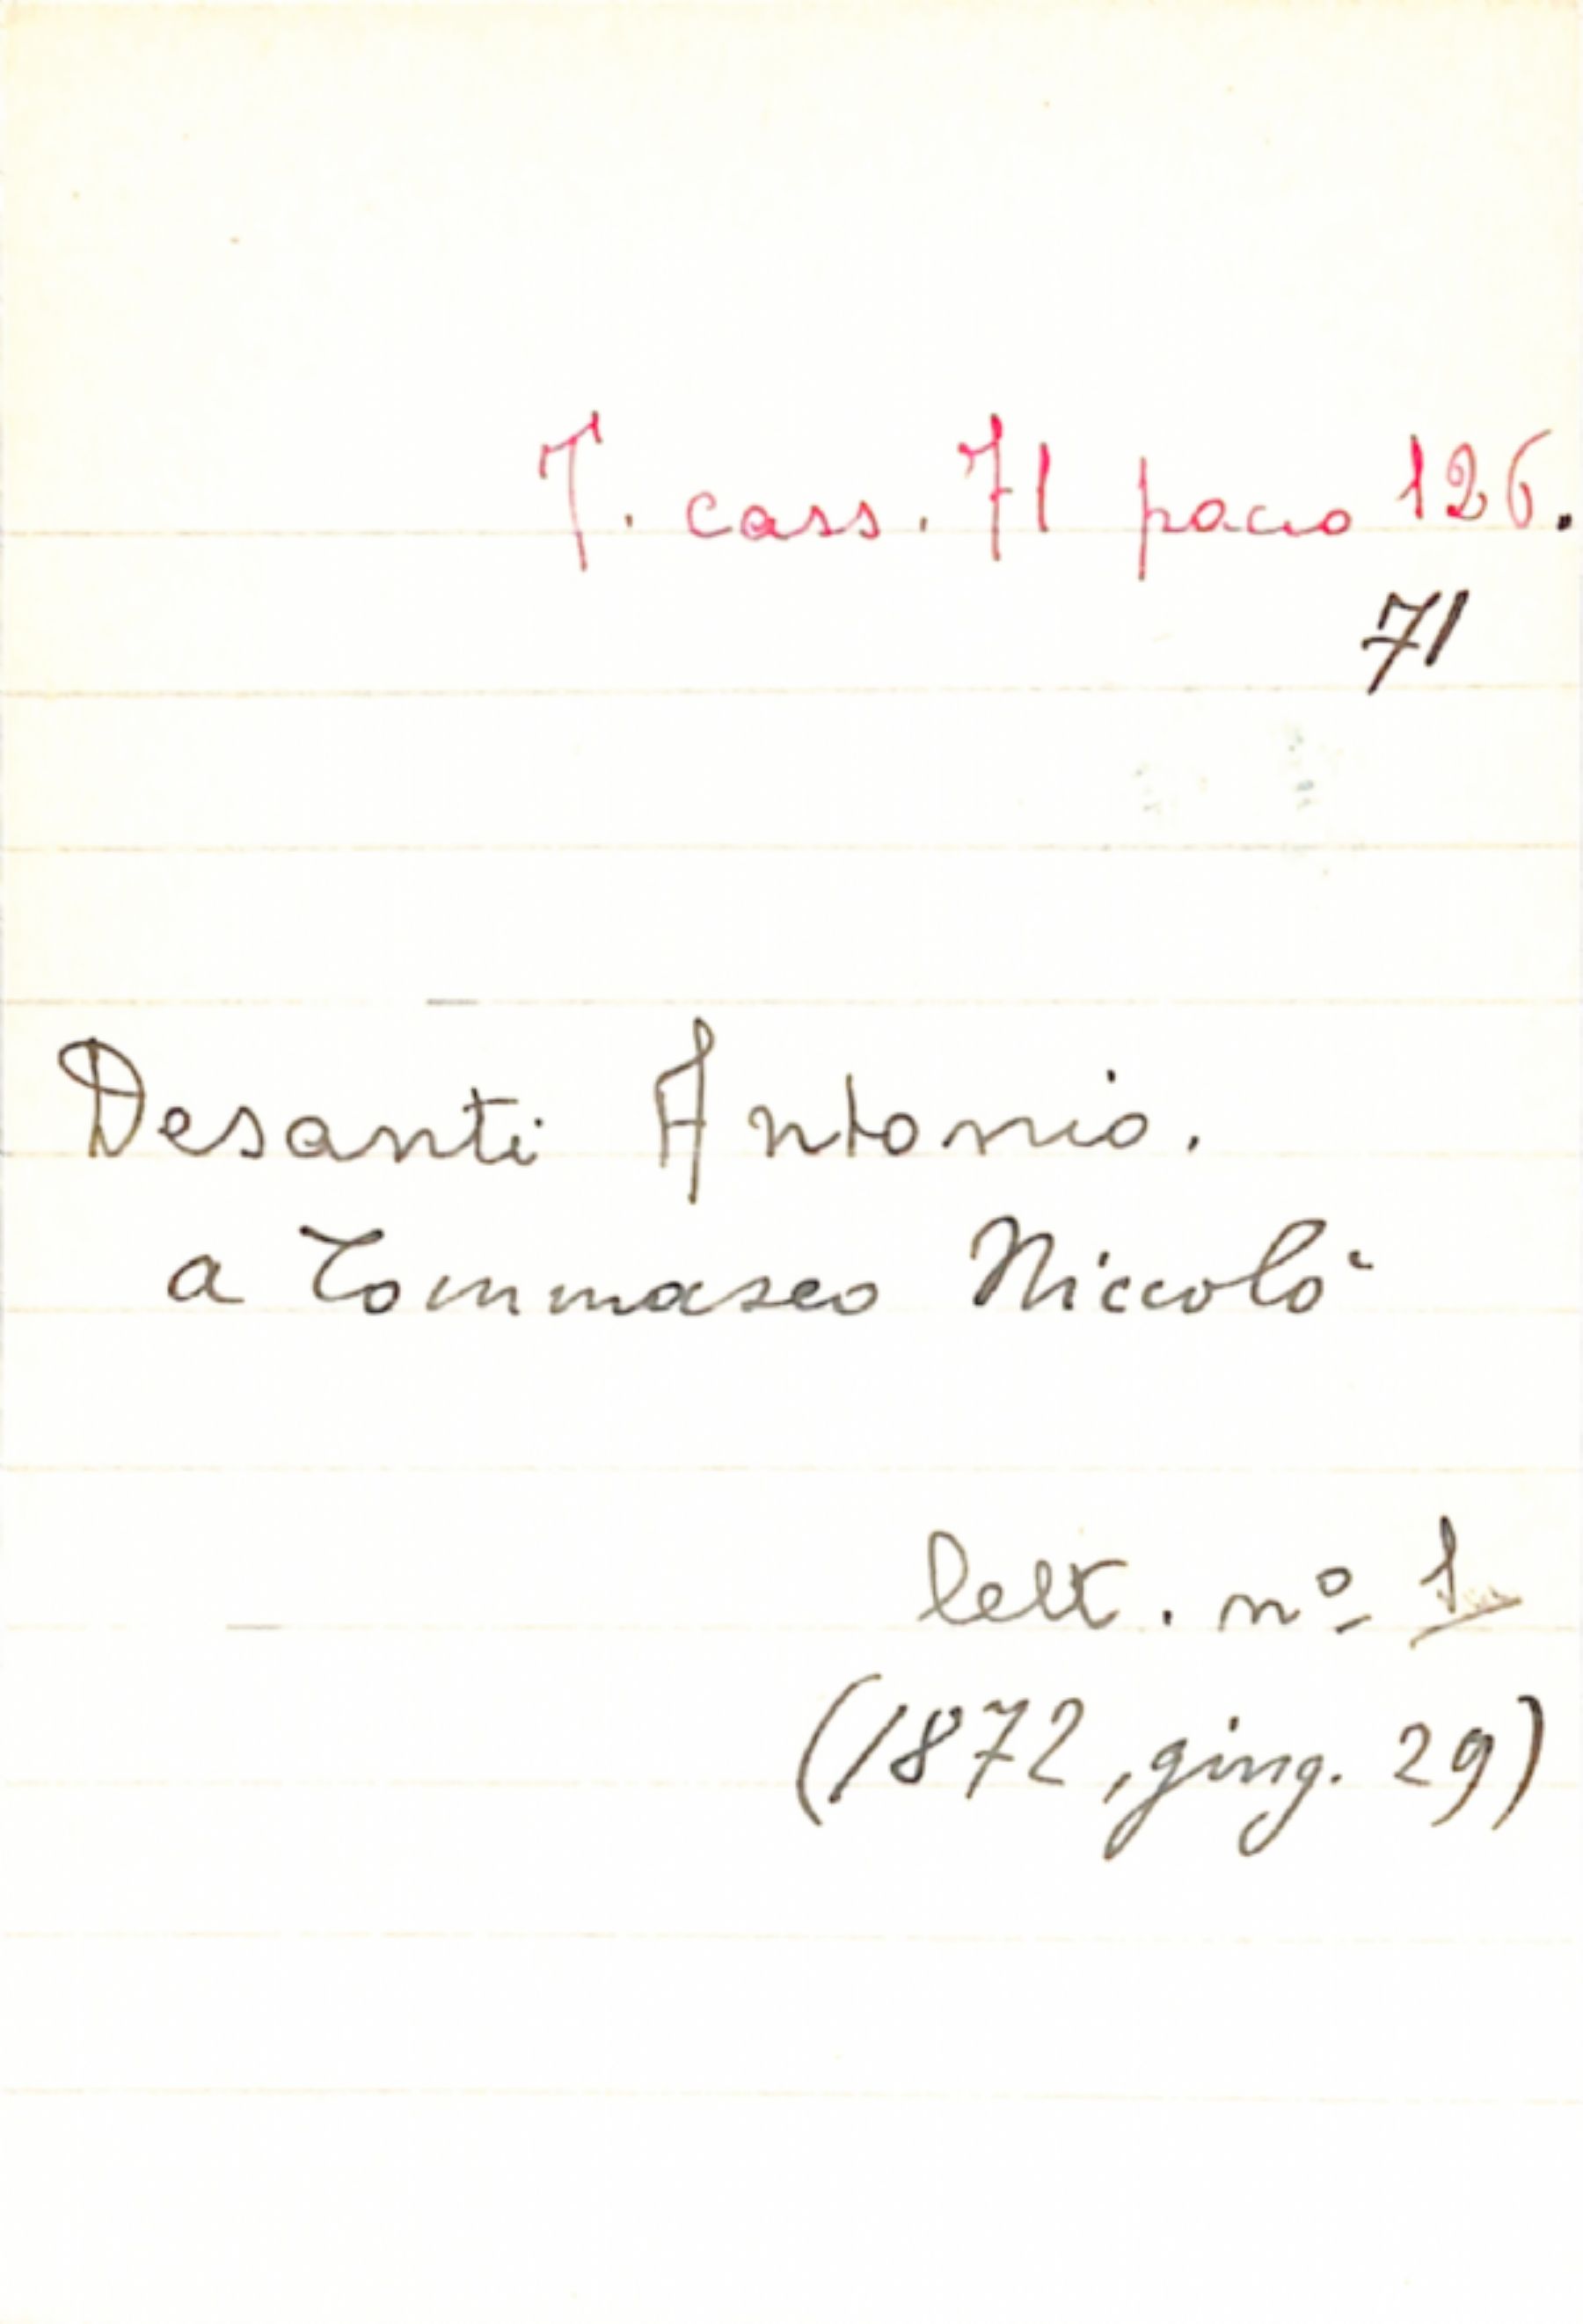 T. cass. 71 pacco 126.
71
Desanti Antonio.
a Tommaseo Niccolò
lett. nº 1
(1872, giug. 29)